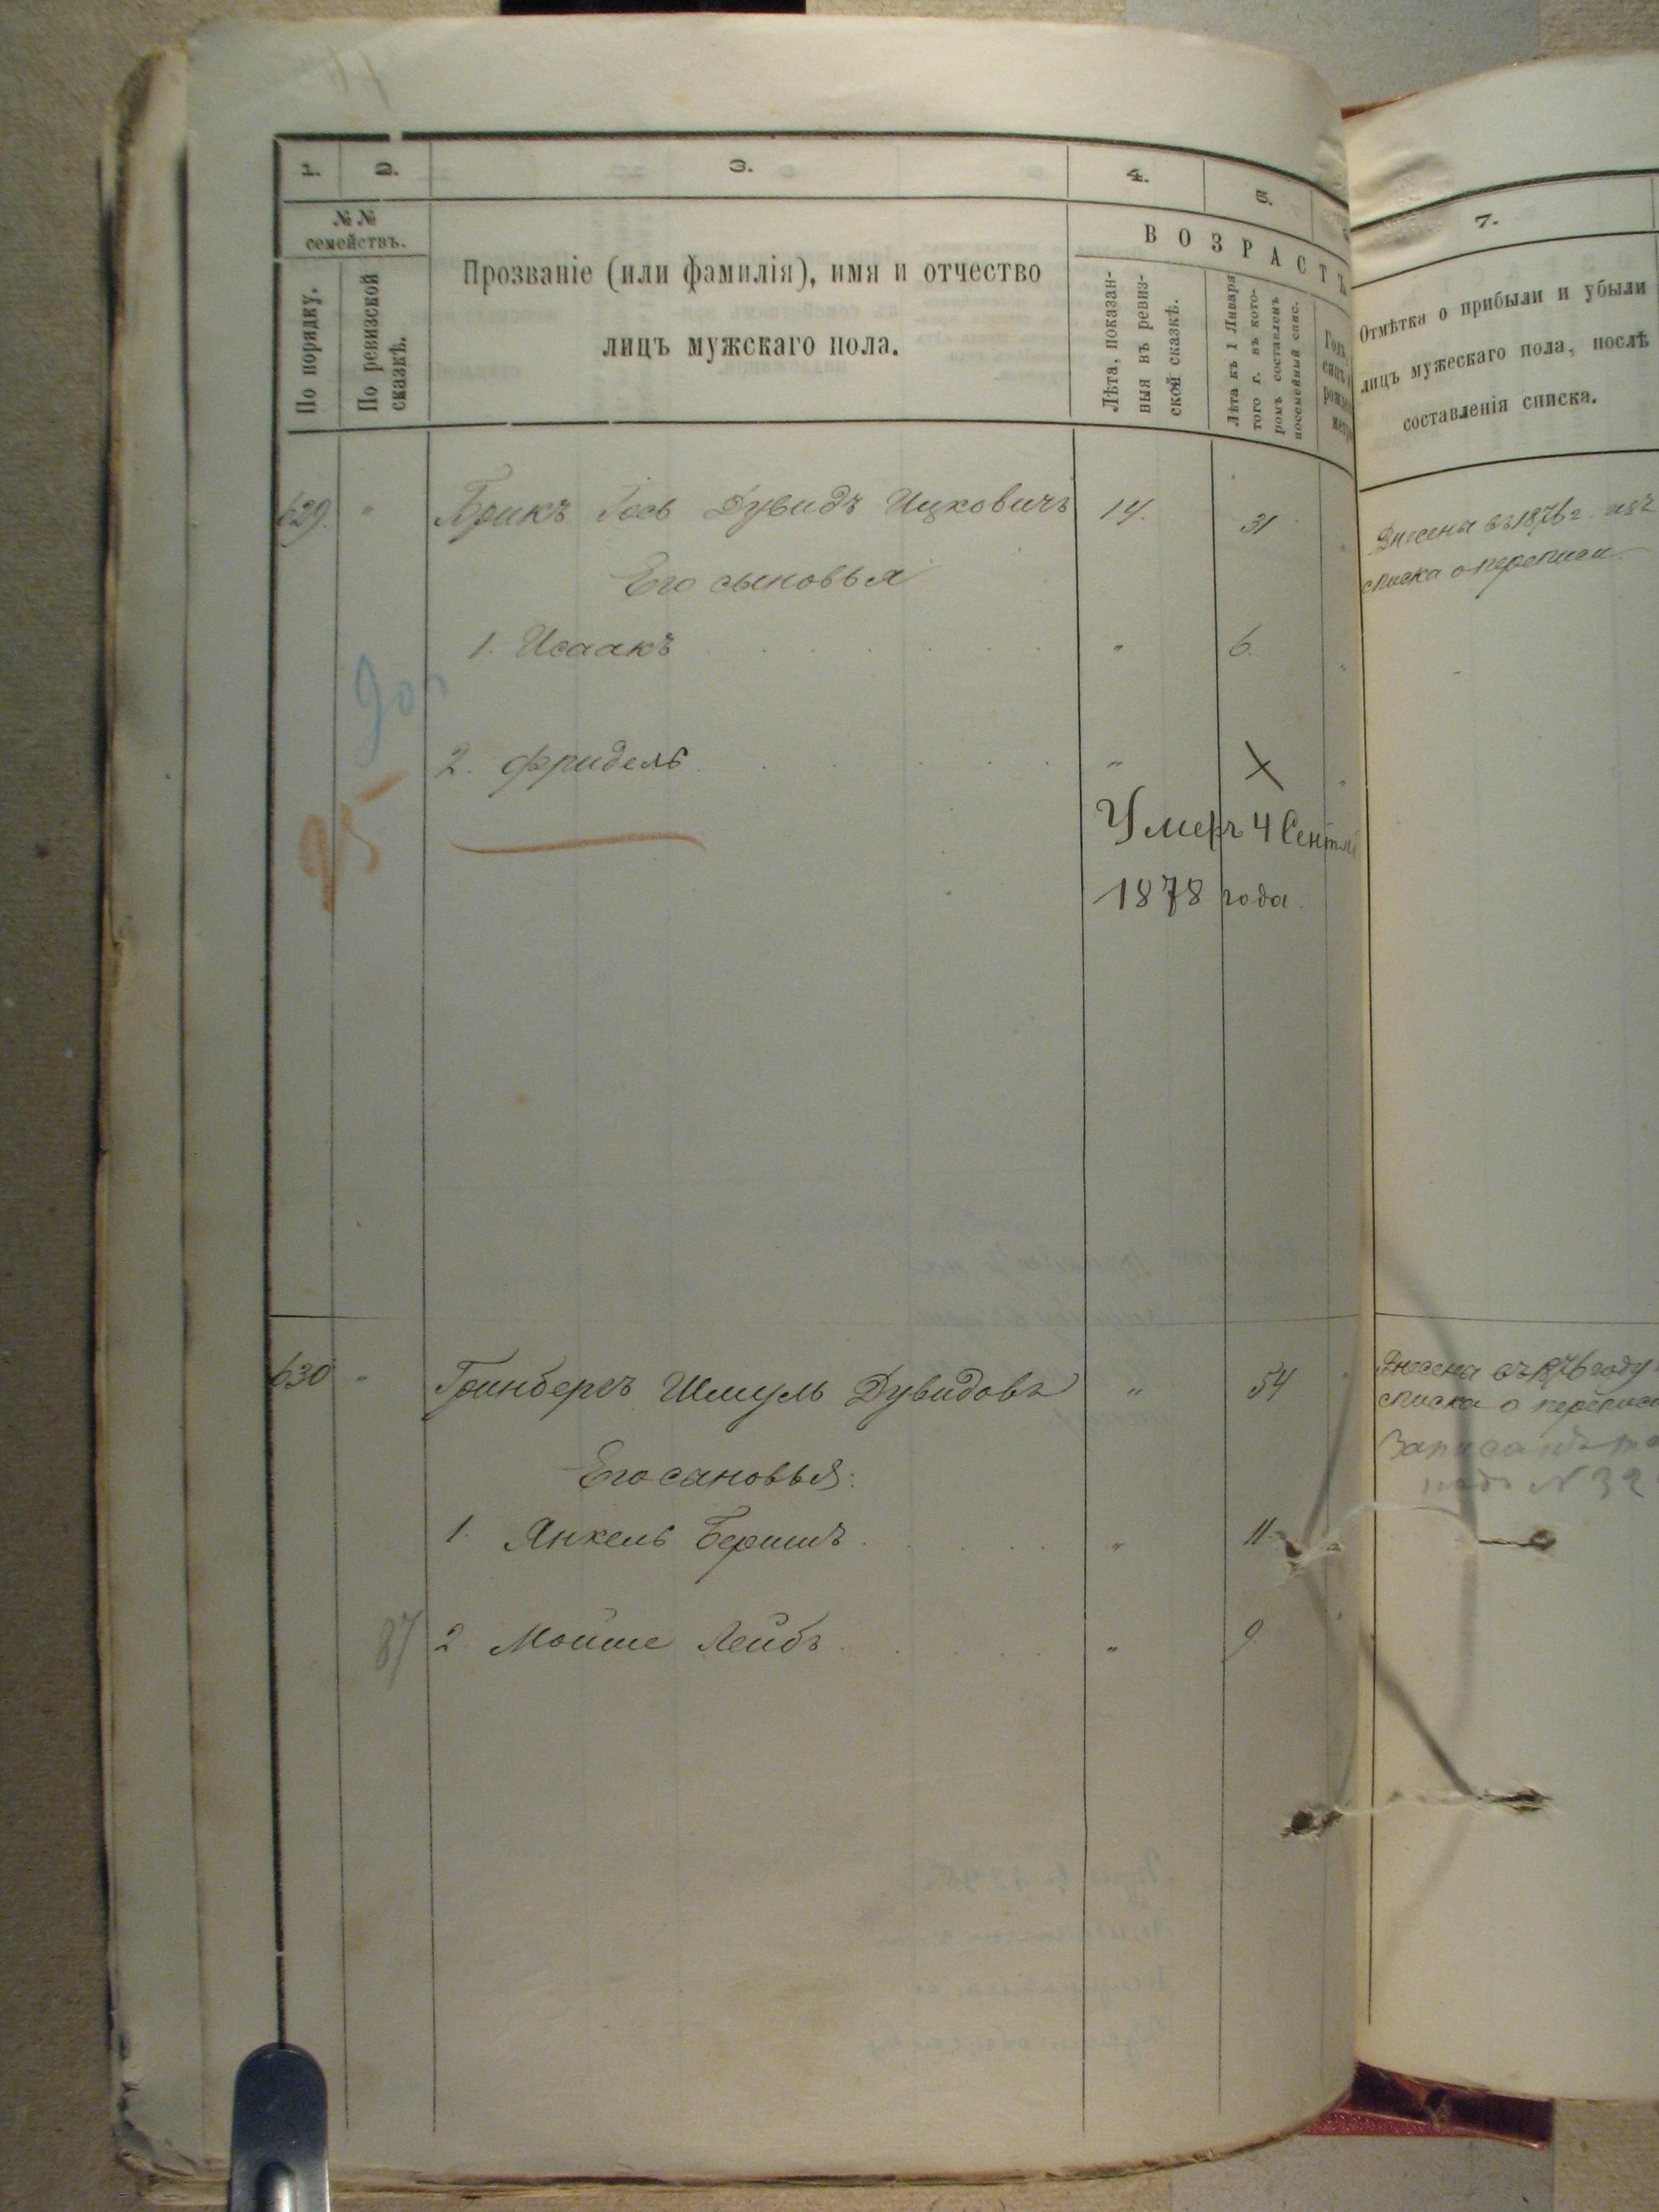 1. 2. 3. 4. 5.
№№ семействъ.
По порядку.
По ревизской сказкѣ.
Прозваніе (или фамилія), имя и отчество
лицъ мужскаго пола.
ВОЗРАСТЪ
Лѣта, показан-
ныя въ ревиз-
ской сказкѣ.
Лѣта къ 1 Января
того г. въ кото-
ромъ составленъ
посемейный спис.
629. " Брикъ Іось Дувидъ Ицковичъ 14. 31
Его сыновья
1. Исаакъ " 6.
90
2. Фридель " X
95
Умеръ 4 Сентя
1878 года.
630 " Гринбергъ Шмуль Дувидовъ " 54
Его сановья:
1. Янкель Беришъ " 11.
87 2 Мойше Лейбъ " 9
7.
Отмѣтка о прибыли и убыли
лицъ мужескаго пола, послѣ
составленія списка.
Внесены въ 1876 г. изъ
списка о переписи
Внесена въ 1876 году
списка о переписи
Записанъ
подъ N 32